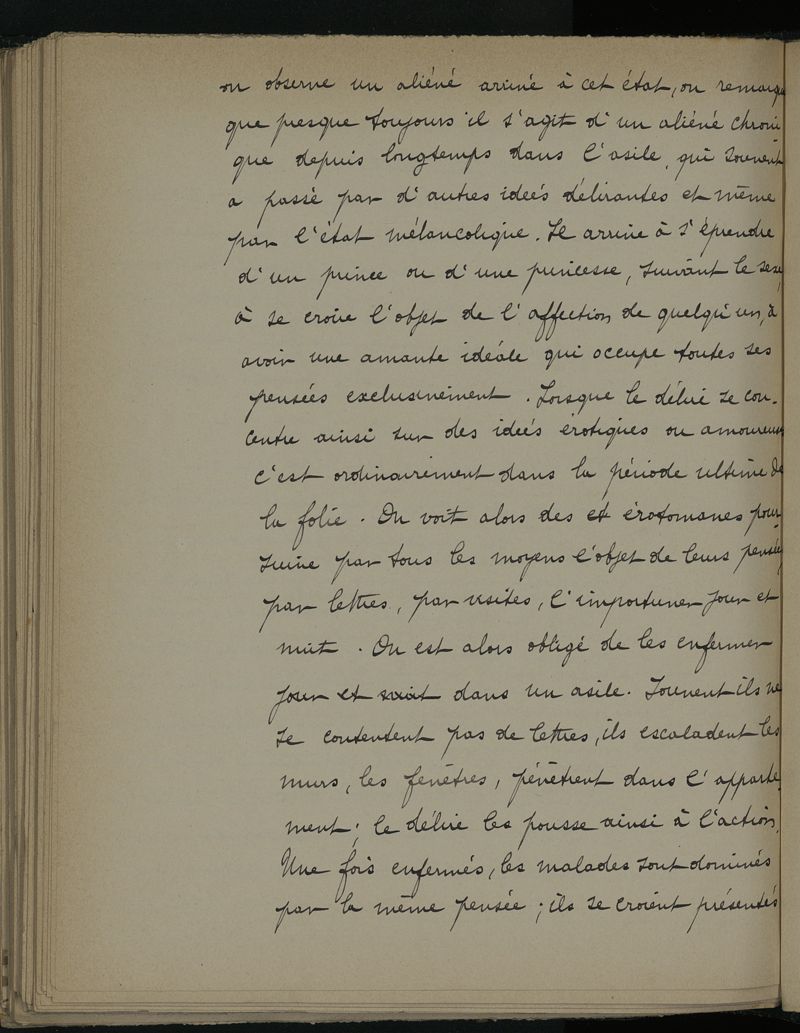 on observe un aliéné arrivé à cet état, on remarque
que presque toujours il s'agit d'un aliéné chroni
que depuis longtemps dans l'asile, qui souvent
a passé par d'autres idées délirantes et même
par l'état mélancolique. Il arrive à s'éprendre
d'un prince ou d'une princesse, suivant le sexe,
à se croire l'objet de l'affection de quelqu'un, à
avoir une amante idéale qui occupe toutes ses
pensées exclusivement. Lorsque le délire se con-
centre ainsi sur des idées érotiques ou amoureuses
c'est ordinairement dans la période ultime de
la folie. On voit alors des et érotomanes pour-
suivre par tous les moyens l'objet de leurs pensées
par lettres, par visites, l'importuner jour et
nuit. On est alors obligé de les enfermer
jour et nuit dans un asile. Souvent ils ne
se contentent pas de lettres, ils escaladent les
murs, les fenêtres, pénètrent dans l'apparte-
ment; le délire les pousse ainsi à l'action.
Une fois enfermés, les malades sont dominés
par la même pensée; ils se croient présentés